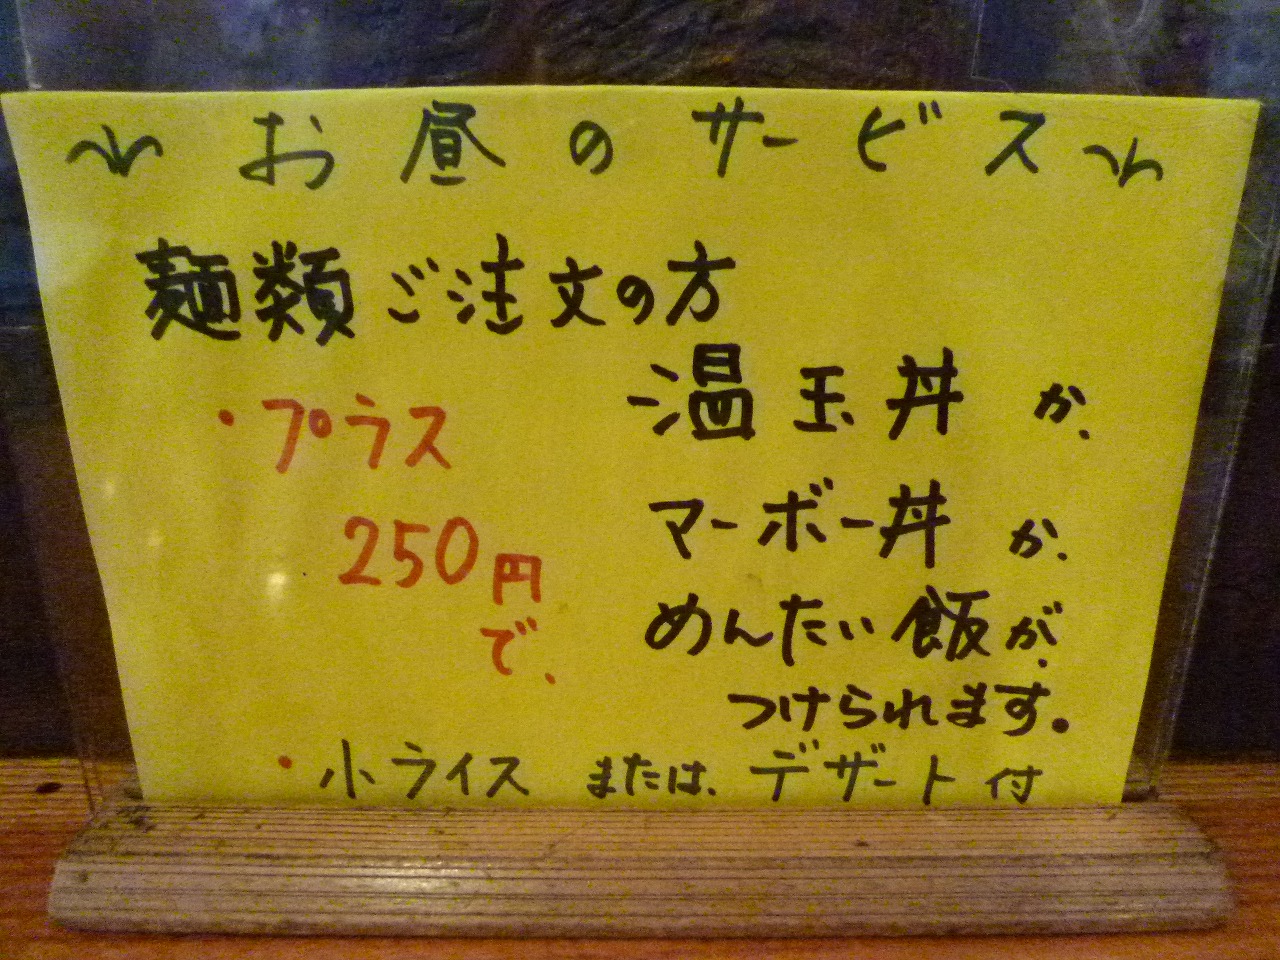 お昼のサービス
麺類ご注文の方
・プラス
250円
で、
温玉丼か、
マーボー丼か、
めんたい飯が、
つけられます。
・小ライスまたは、デザート付